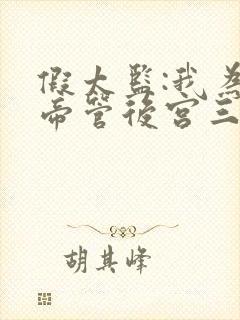 假太監:我為
帝管後宮三
胡其峰